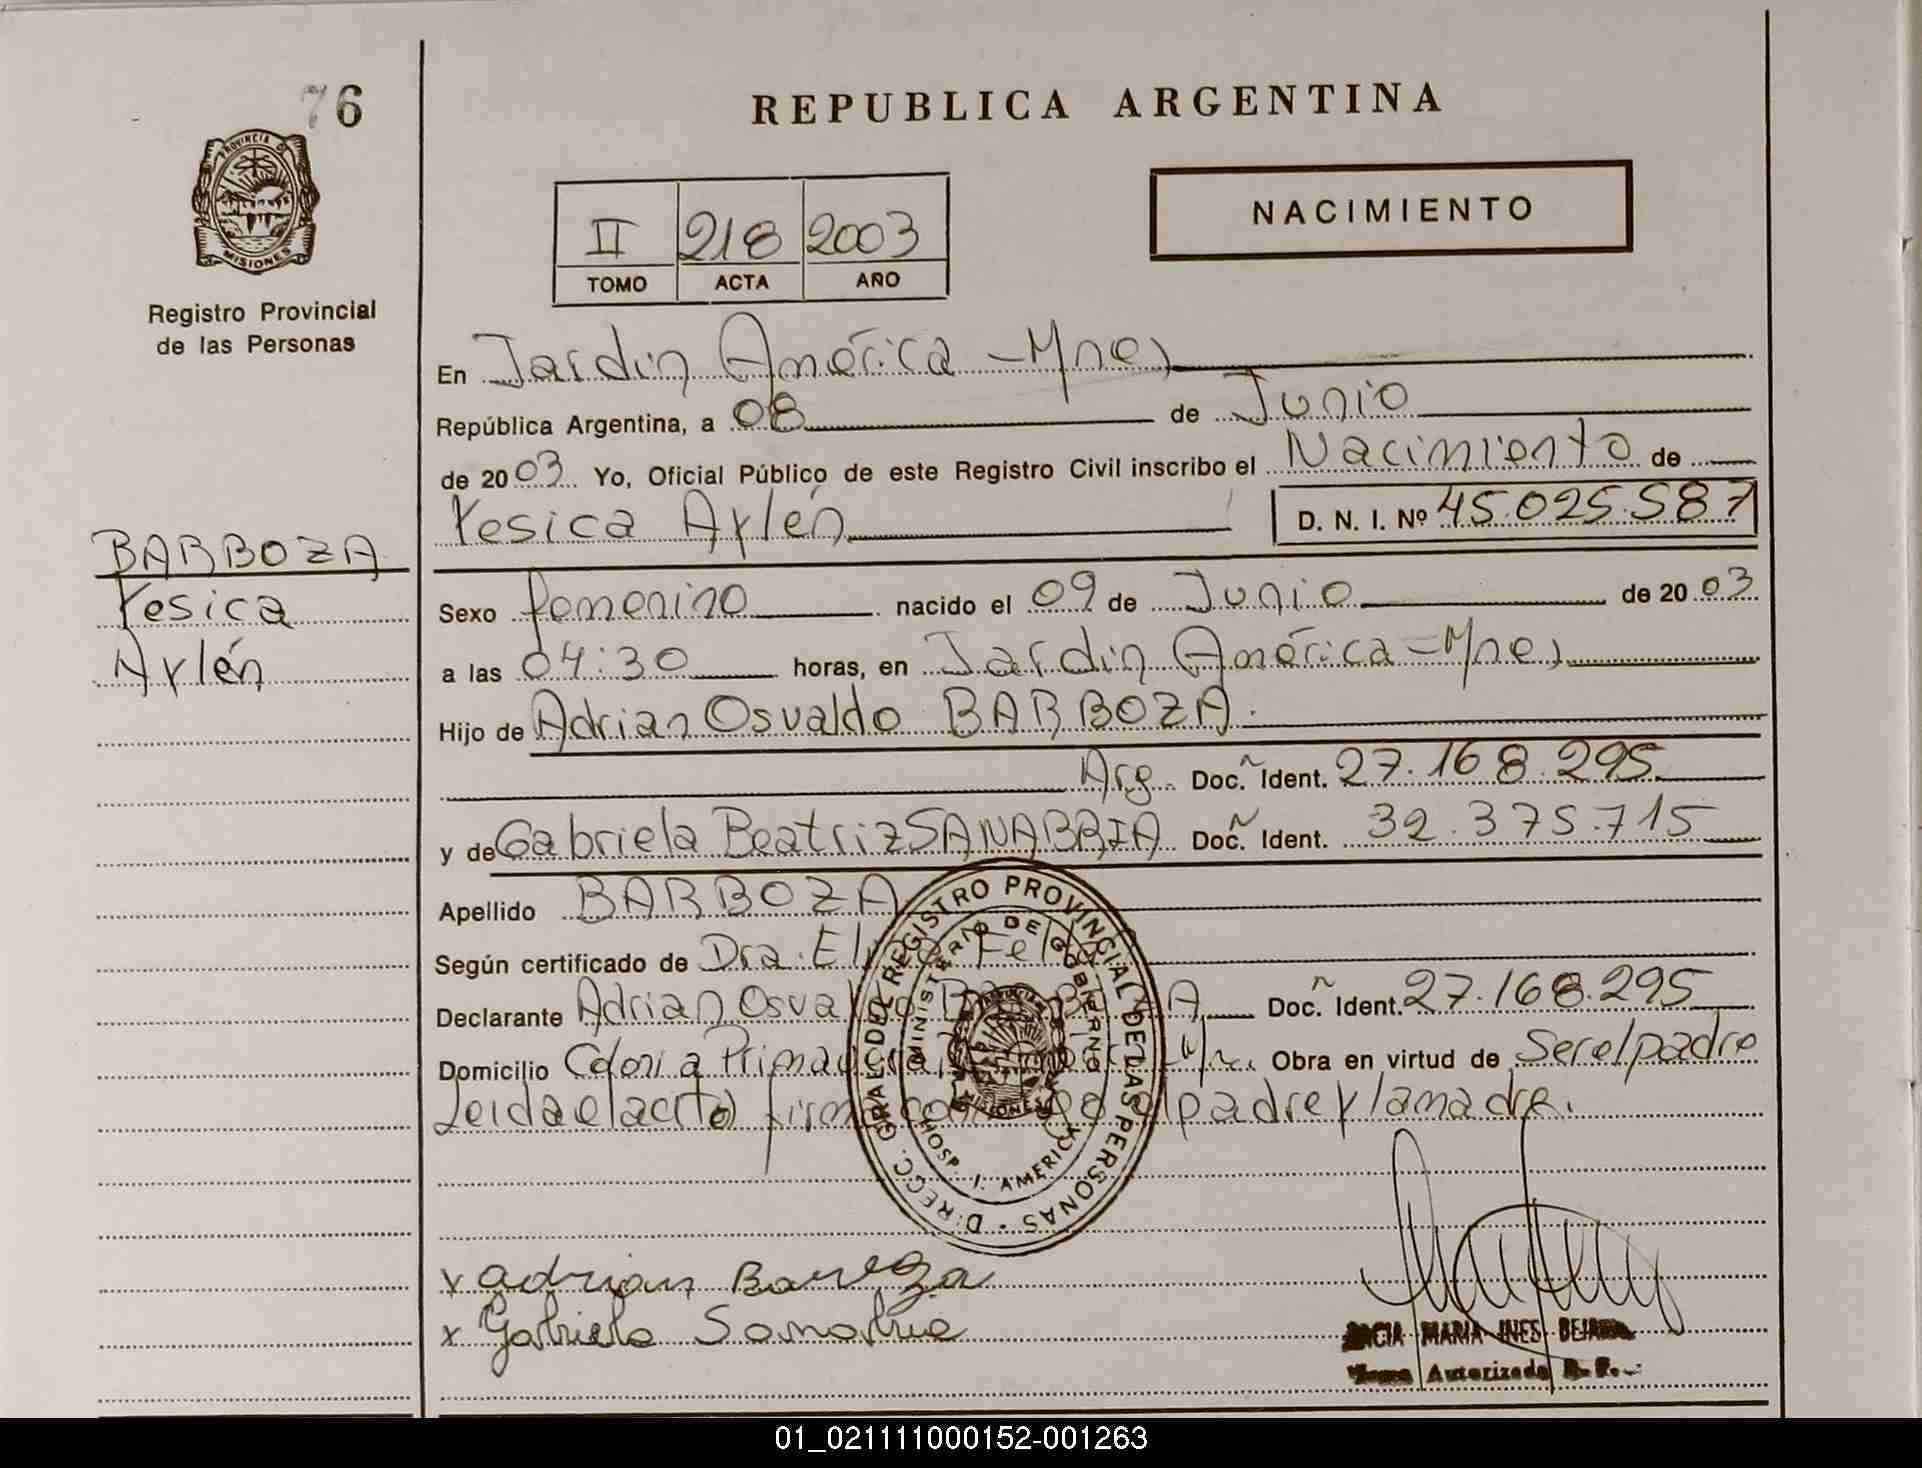 76
PROVINCIA DE
MISIONES
Registro Provincial
de las Personas
REPUBLICA ARGENTINA
II 218 2003
TOMO ACTA AÑO
NACIMIENTO
En Jardin América - Mnes
República Argentina, a 08 de Junio
de 2003 Yo, Oficial Público de este Registro Civil inscribo el Nacimiento de
Yesica Aylén D. N. I. Nº 45.025.587
BARBOZA
Yesica
Aylén
Sexo femenino nacido el 09 de Junio de 2003
a las 04:30 horas, en Jardin América - Mnes
Hijo de Adrian Osvaldo BARBOZA.
Arg. Doc. Ident. 27.168.295
y de Gabriela Beatriz SANABRIA Doc. Ident. 32.375.715
Apellido BARBOZA
Según certificado de Dra.
Declarante Adrian Osvaldo BARBOZA Doc. Ident. 27.168.295
Domicilio Colonia Primavera Obra en virtud de Ser el padre
Leida el acta firman el padre y la madre.
DIRECC. GRAL. DEL REGISTRO PROVINCIAL DE LAS PERSONAS
MINISTERIO DE GOBIERNO
MISIONES
HOSP. J. AMERICA
x Adrian Barboza
x Gabriela Sanabria
MARIA INES
Autorizada
01_021111000152-001263